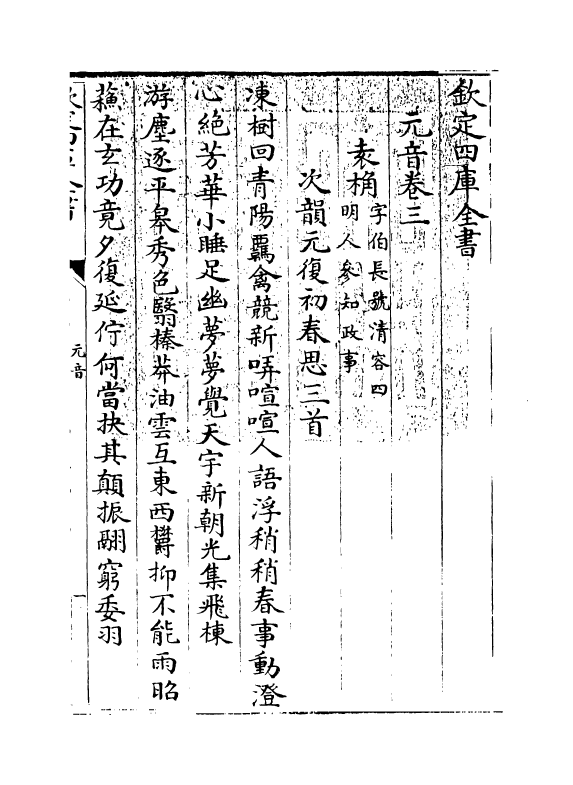 欽定四庫全書
元音卷三
袁桷字伯長號清容四
明人參知政事
次韻元復初春思三首
凍樹回青陽羈禽競新哢喧喧人語浮稍稍春事動澄
心絶芳華小睡足幽夢夢覺天宇新朝光集飛棟
游塵逐平皋秀色翳榛莽油雲互東西欝抑不能雨昭
蘓在玄功竟夕復延佇何當抉其顛振翮窮委羽
元音
一